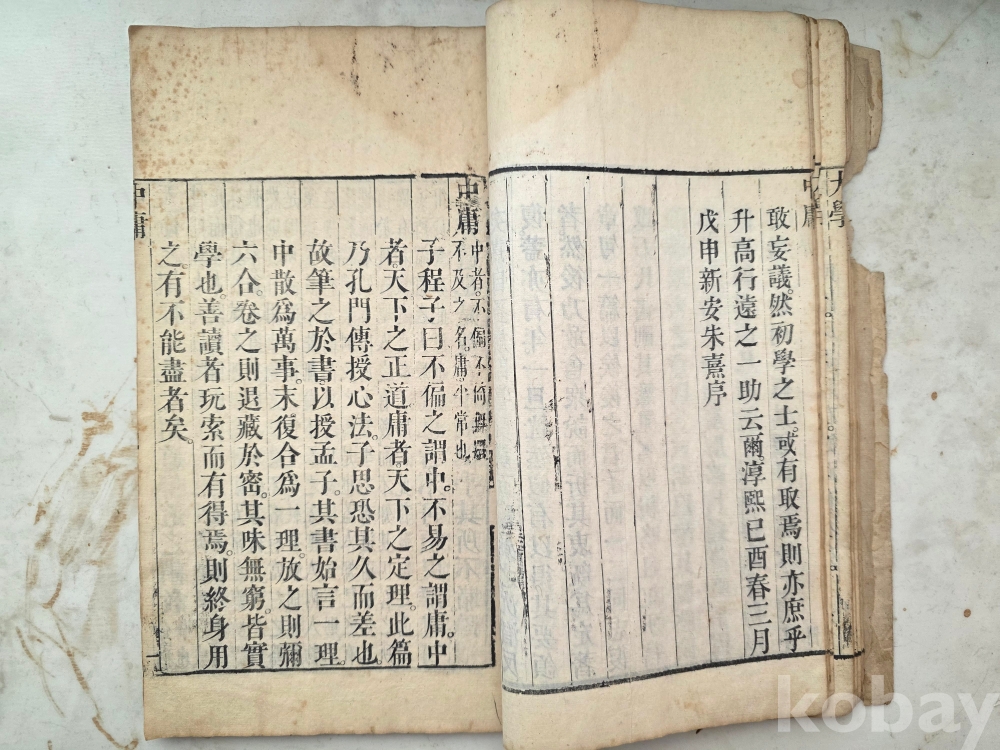 敢妄議。然初學之士。或有取焉。則亦庶乎
升高行遠之一助云爾。淳熙己酉春三月
戊申新安朱熹序
大學
中庸
中庸
中者。不偏不倚無過
不及之名。庸。平常也。
子程子曰不偏之謂中。不易之謂庸。中
者。天下之正道。庸者。天下之定理。此篇
乃孔門傳授心法。子思恐其久而差也
故筆之於書。以授孟子。其書始言一理。
中散爲萬事。末復合爲一理。放之則彌
六合。卷之則退藏於密。其味無窮。皆實
學也。善讀者玩索而有得焉。則終身用
之。有不能盡者矣。
中庸
kobay